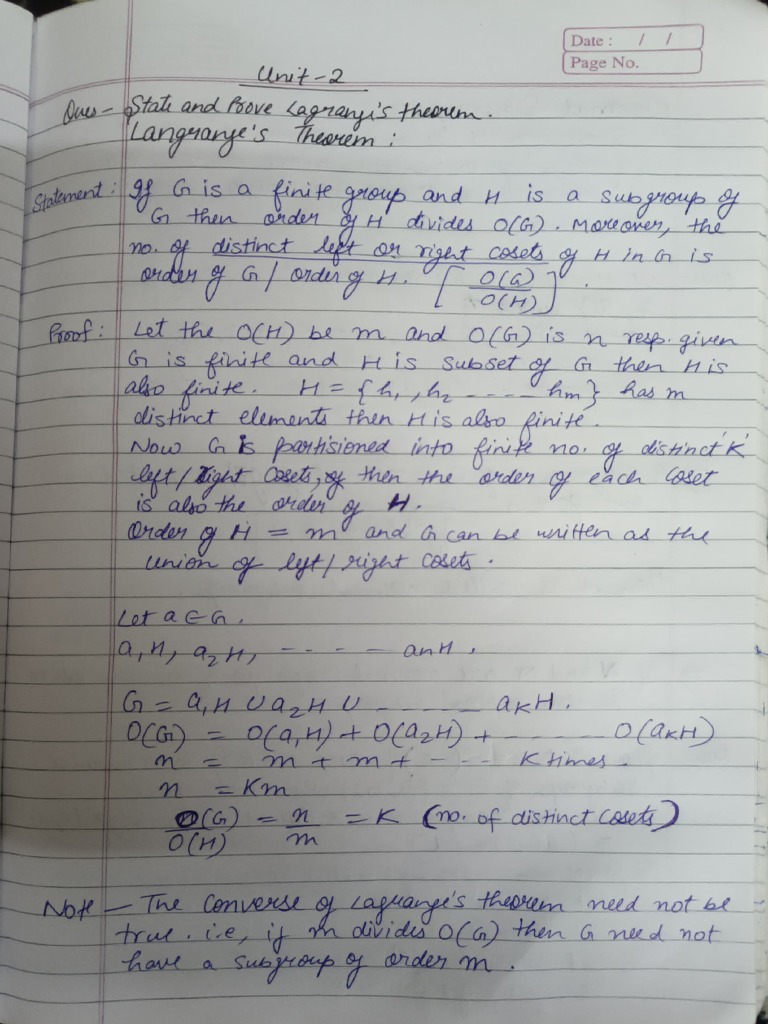 Date : / /
Page No.
Unit-2
Ques - State and Prove Lagrangi's theorem.
Langranye's Theorem :
Statement : If G is a finite group and H is a subgroup of
G then order of H divides O(G). Moreover, the
no. of distinct left or right cosets of H in G is
order of G / order of H. [ O(G) / O(H) ] .
Proof : Let the O(H) be m and O(G) is n resp. given
G is finite and H is subset of G then H is
also finite. H = {h1, h2 ----- hm} has m
distinct elements then H is also finite.
Now G is partisioned into finite no. of distinct 'K'
left / right cosets, of then the order of each coset
is also the order of H.
Order of H = m and G can be written as the
union of left / right cosets .
Let a ∈ G.
a1H, a2H, ----- anH .
G = a1H ∪ a2H ∪ ------ aKH .
O(G) = O(a1H) + O(a2H) + ------ O(aKH)
n = m + m + ---- K times .
n = Km
O(G) / O(H) = n / m = K (no. of distinct cosets)
Note - The converse of Lagrange's theorem need not be
true . i.e, if m divides O(G) then G need not
have a subgroup of order m .